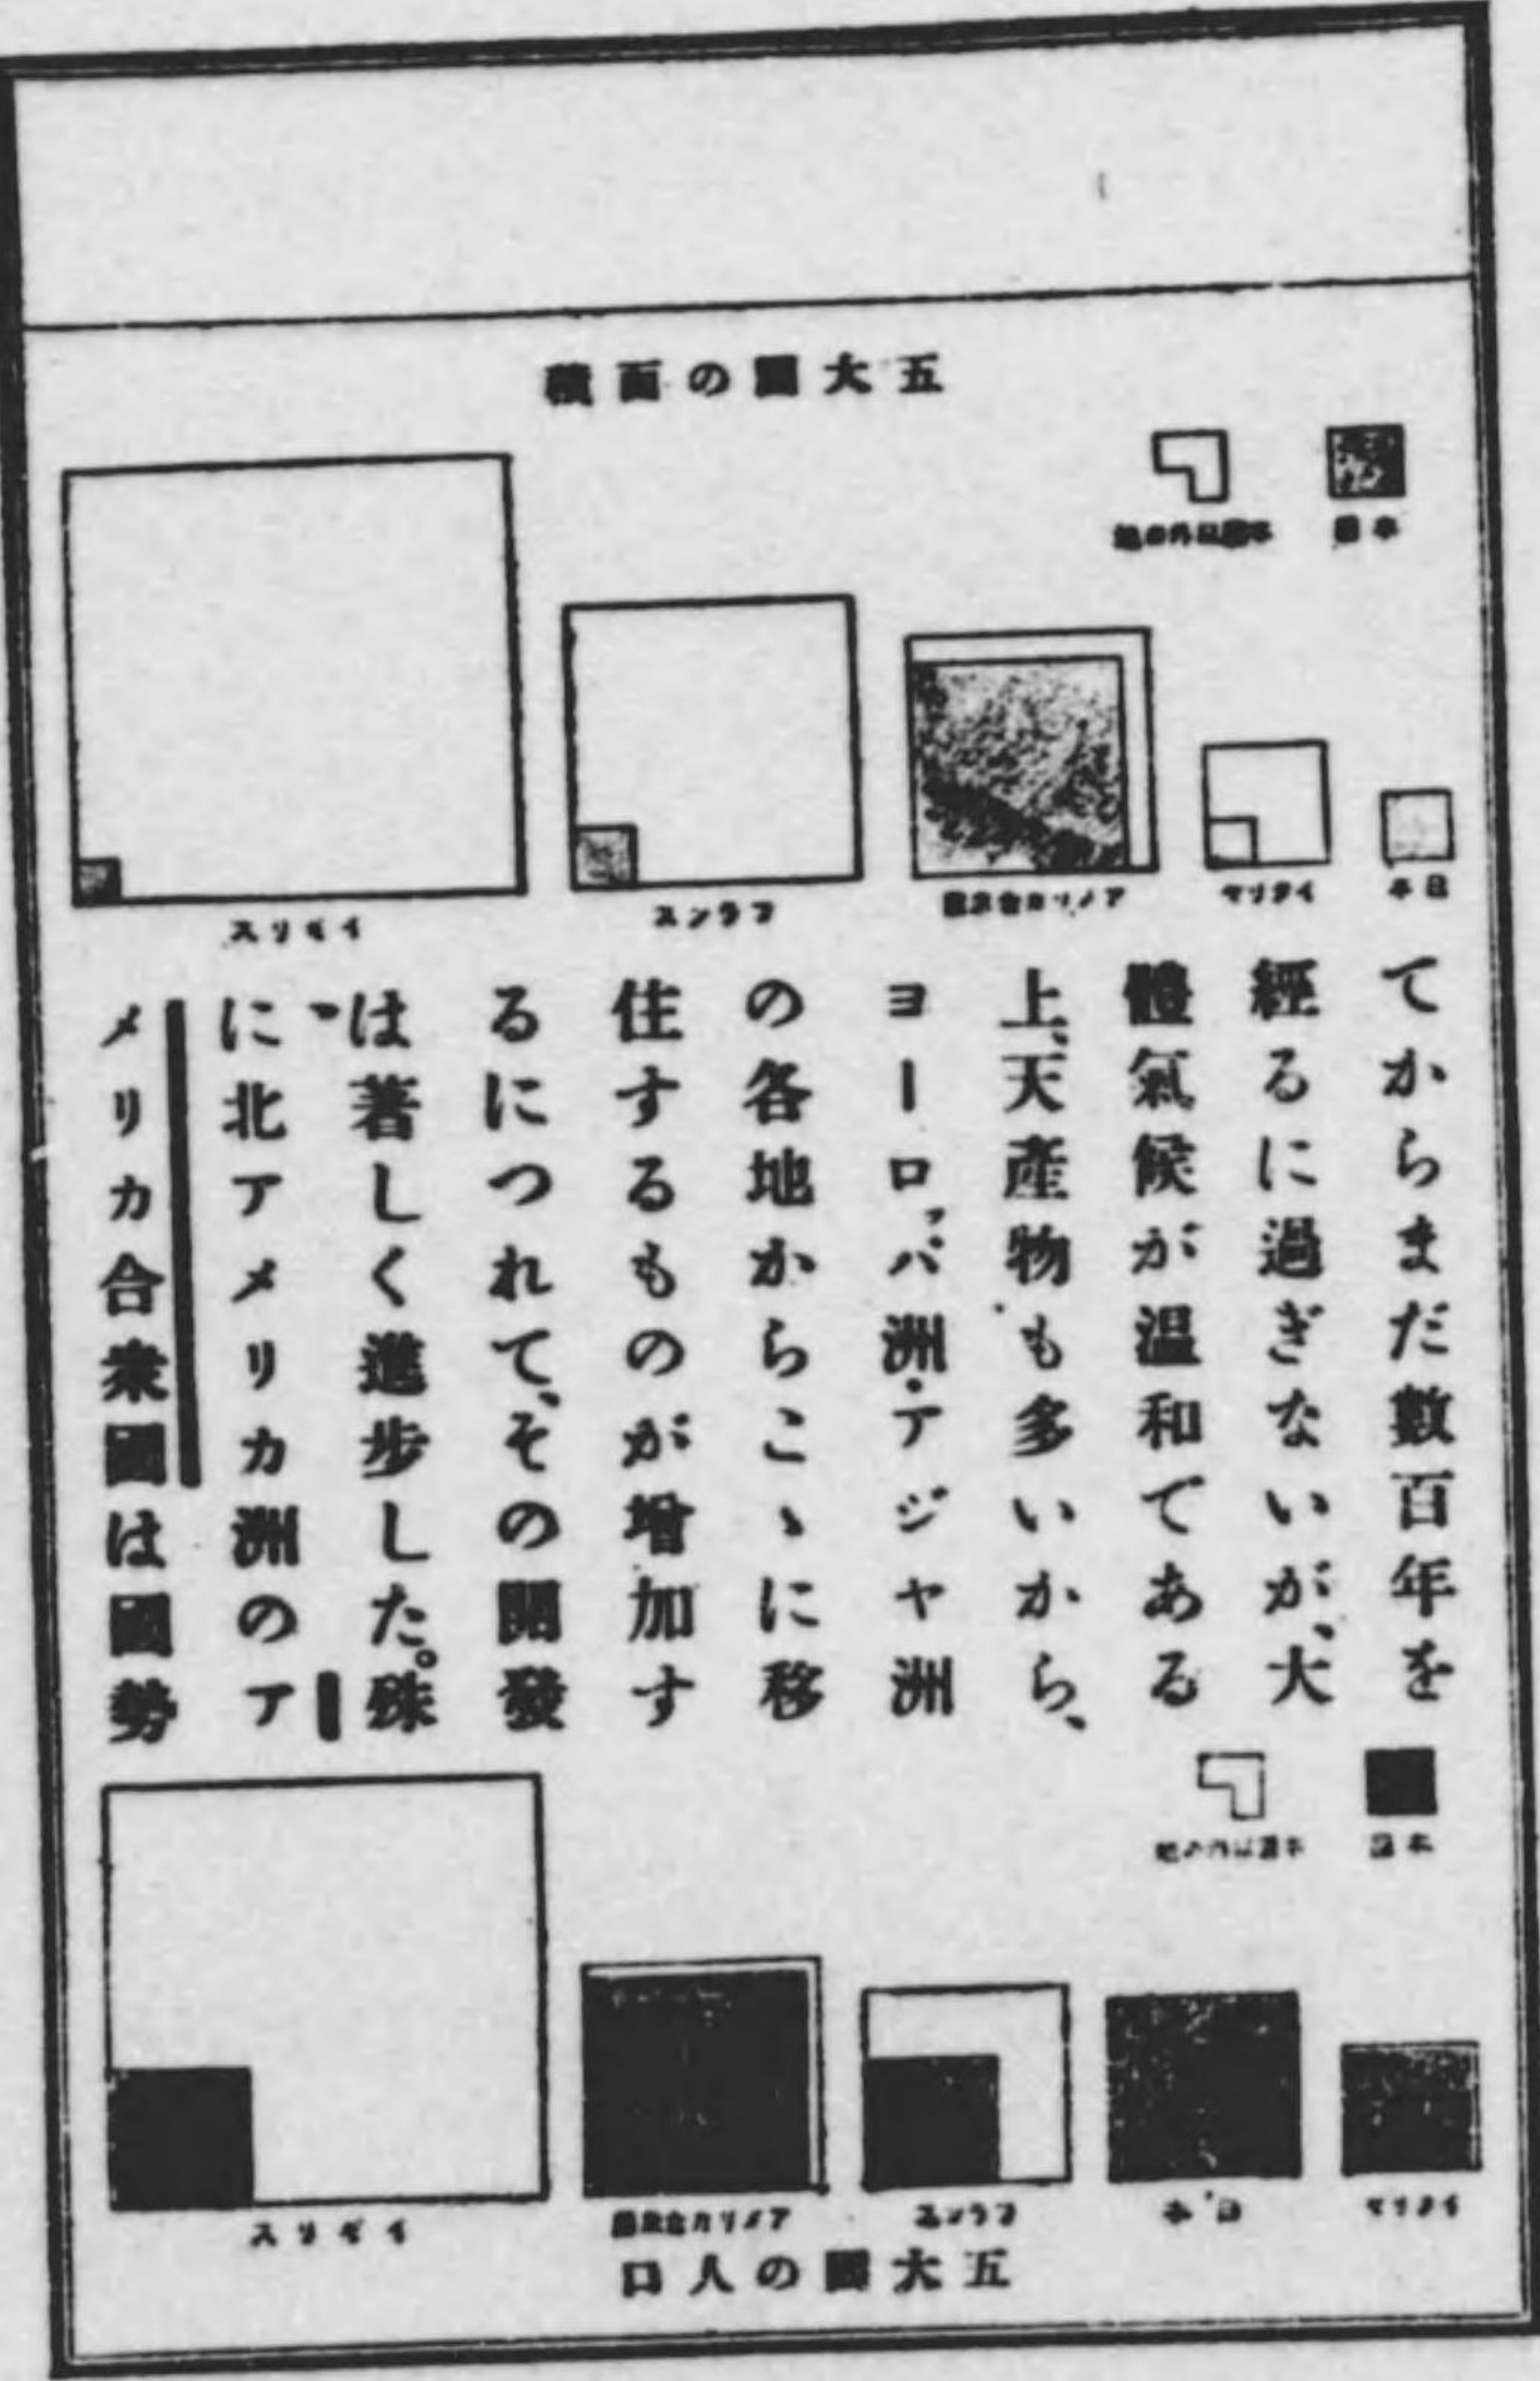 五大國の面積
本國
本國以外の地
日本
イタリヤ
アメリカ合衆國
フランス
イギリス
てからまだ數百年を
經るに過ぎないが、大
體氣候が温和である
上、天產物も多いから、
ヨーロッパ洲・アジヤ洲
の各地からこゝに移
住するものが增加す
るにつれて、その開發
は著しく進步した。殊
に北アメリカ洲のア
メリカ合衆國は國勢
本國
本國以外の地
イタリヤ
日本
フランス
アメリカ合衆國
イギリス
五大國の人口